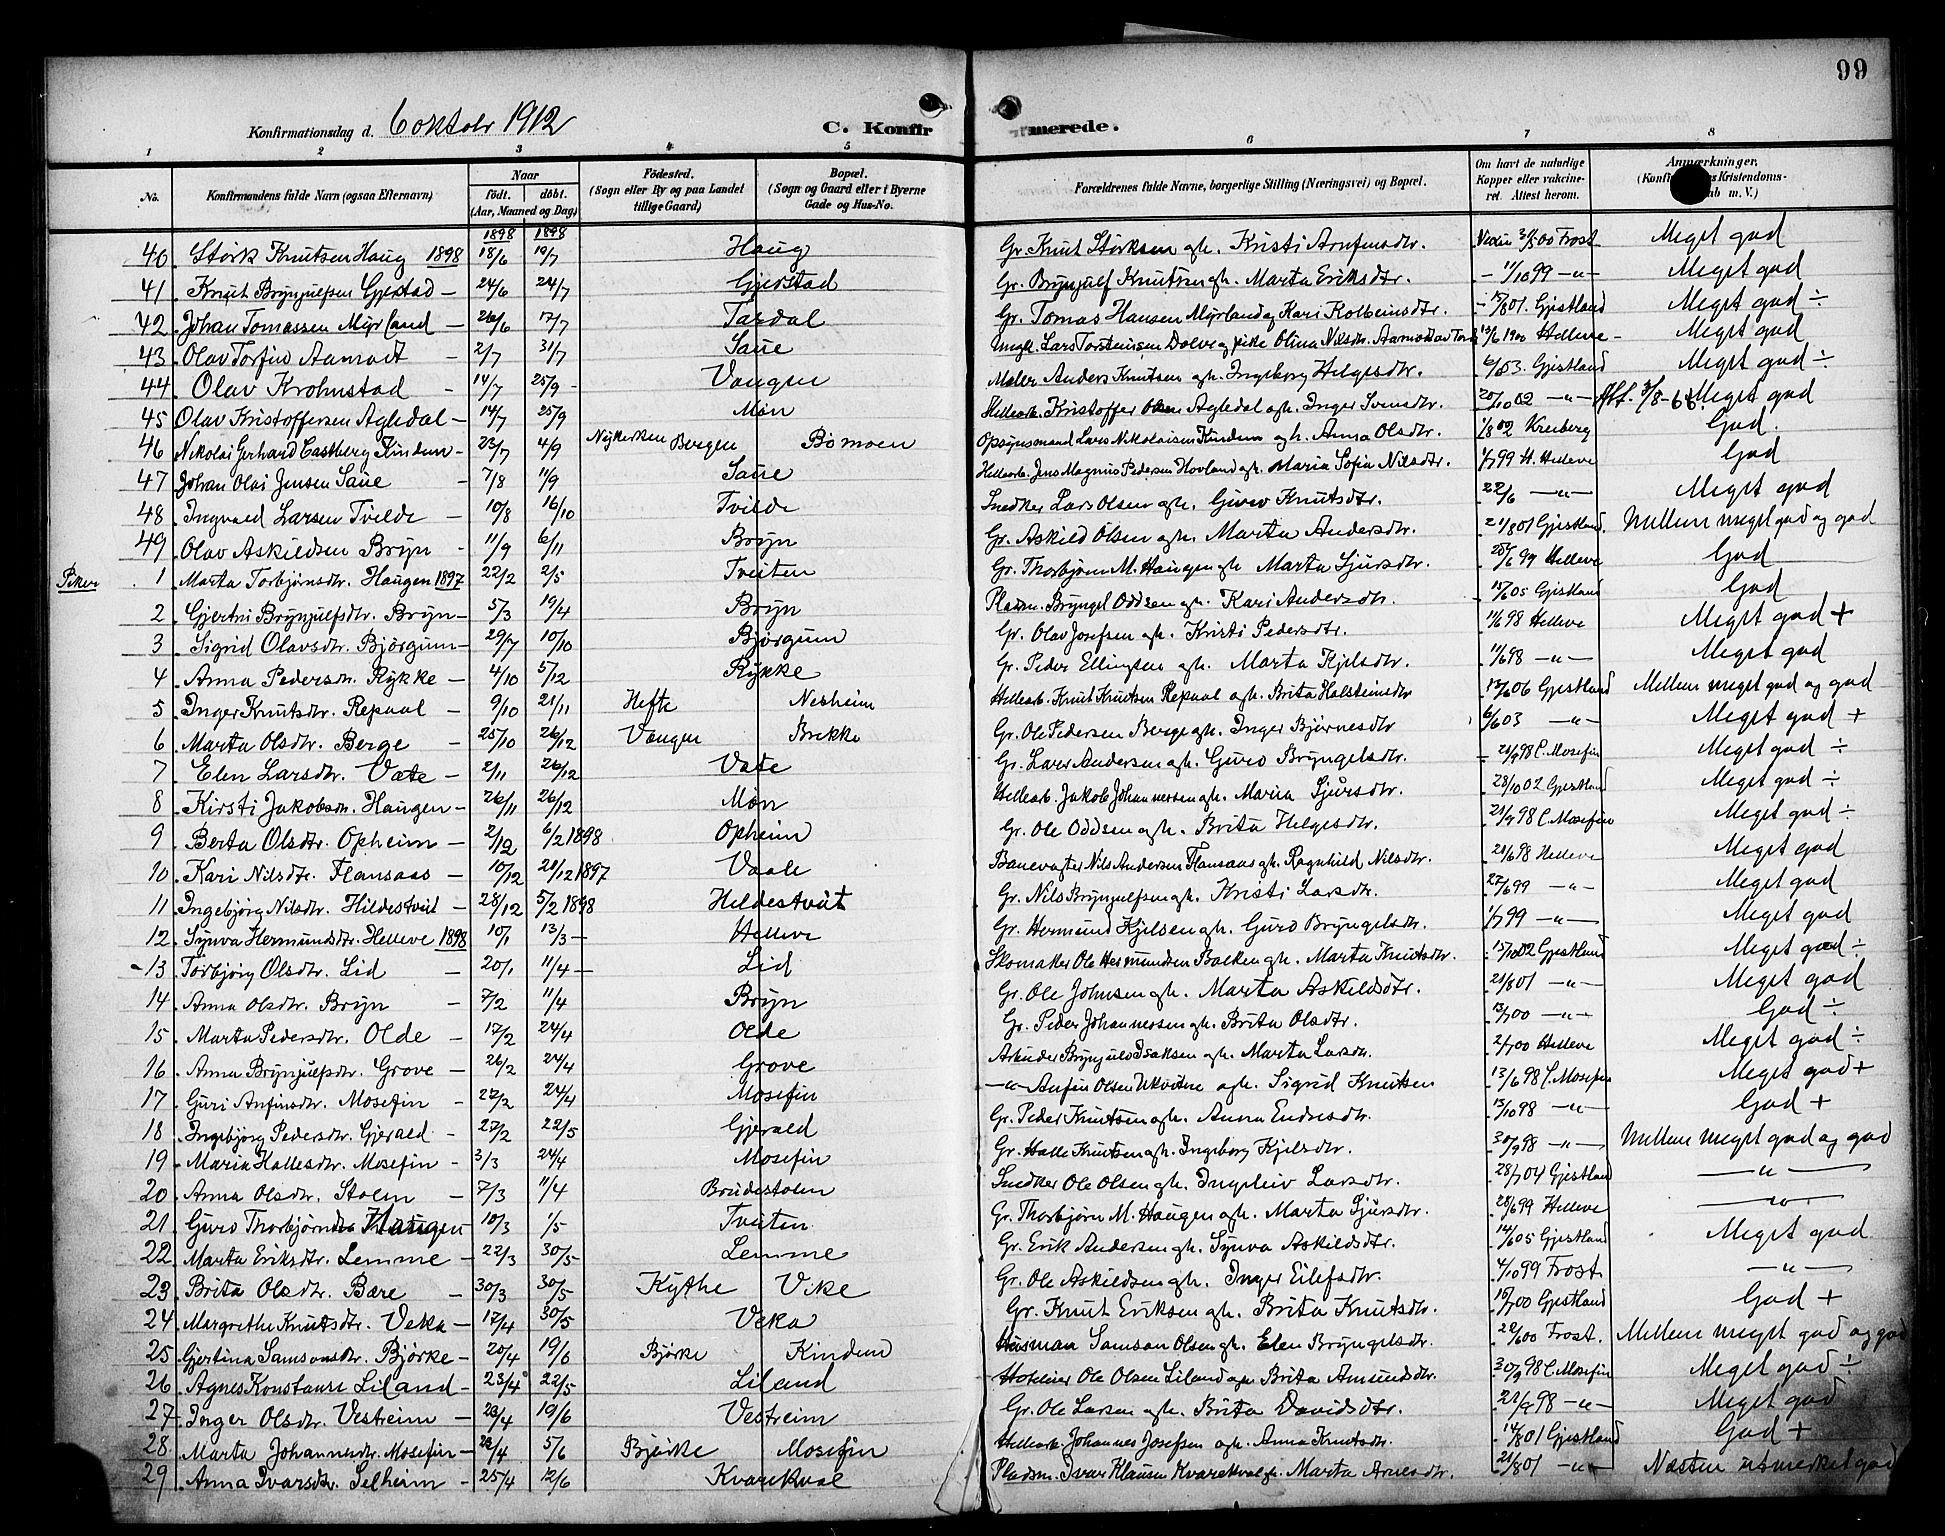 99
Konfirmationsdag d. 6 oktobr 1912 C. Konfirmerede.
1 2 3 4 5 6 7 8
No. Konfirmandens fulde Navn (ogsaa Efternavn). Naar født. døbt. (Aar, Maaned og Dag) Fødested. (Sogn eller By og paa Landet tillige Gaard) Bopæl. (Sogn og Gaard eller i Byerne Gade og Hus-No. Forældrenes fulde Navne, borgerlige Stilling (Næringsvei) og Bopæl. Om havt de naturlige Kopper eller vakcineret. Attest herom. Anmærkninger.
1898 1898
40. Størk Knutsen Haug 1898 18/6 10/7 Haug Gr. Knut Størksen og h. Kristi Arnfinsdtr. Frost Meget god
41. Knut Brynjulfsen Gjerstad – 24/6 24/7 Gjerstad Gr. Brynjulf Knutsen og h. Marta Eriksdtr. – 11/10 99 –"– Meget god
42. Johan Tomassen Myrland – 26/6 17/7 Tardal Gr. Tomas Hansen Myrland og Kari Kolbeinsdtr. Gjestland Meget god ÷
43. Olav Torfin Aamodt – 2/7 31/7 Saue Ungk. Lars Torsteinsen Dolve og pike Olina Nilsdtr. 13/6 1900 Helleve – Meget god
44. Olav Krohnstad – 14/7 25/9 – Vangen Maler Anders Knutsen og h. Ingeborg Helgesdtr. Gjestland Meget god ÷
45. Olav Kristoffersen Agledal – 14/7 25/9 Møn Hellearb. Kristoffer Olsen Agledal og h. Inger Svensdtr. 20/10 02 –"– Meget god
46. Nikolai Gerhard Castberg Kindem – 23/7 4/9 Nykirken Bergen Bømoen Opsynsmand Lars Nikolaisen Kindem og h. Anna Olsdtr. 1/8 02 Kreiberg God.
47. Johan Olai Jensen Saue – 7/8 11/9 Saue Hellearb. Jens Magnus Pedersen Hovland og h. Maria Sofia Nilsdtr. 1/7 99 H. Helleve God
48. Ingvald Larsen Tvilde – 10/8 16/10 Tvilde Snedker Lars Olsen og h. Guro Knutsdtr. 22/6 –"– Meget god
49. Olav Askildsen Bryn – 11/9 6/11 Bryn Gr. Askild Olsen og h. Marta Andersdtr. 21/8 01 Gjestland. Mellem meget god og god
Piker 1. Marta Torbjørnsdtr. Haugen 1897 22/2 2/5 Tveiten Gr. Thorbjørn M. Haugen og h. Marta Sjursdtr. Helleve God
2 Gjertni Brynjulfsdtr. Bryn – 5/3 19/4 Bryn Pladsm. Bryngel Oddsen og h. Kari Andersdtr. 15/6 05 Gjestland God
3 Sigrid Olavsdtr. Bjørgum – 29/7 10/10 Bjørgum Gr. Olav Josefsen og h. Kristi Pedersdtr. 11/6 98 Helleve Meget god +
4 Anna Pedersdtr. Rykke – 4/10 5/12 Rykke Gr. Peder Ellingsen og h. Marta Kjelsdtr. 11/6 98 –"– Meget god
5. Inger Knutsdtr. Repaal – 9/10 21/11 Hefte Nesheim Hellearb. Knut Knutsen Repaal og h. Brita Holsteinsdtr 13/6 06 Gjestland Mellem meget god og god
6. Marta Olsdtr. Berge – 25/10 26/12 Vangen Brekke Gr. Ole Pedersen Berge og h. Inger Bjørnesdtr 6/6 03 –"– Meget god +
7. Elen Larsdtr. Væte – 2/11 26/12 Væte Gr. Lars Andersen og h. Guro Bryngelsdtr. C. Mosefin Meget god ÷
8. Kirsti Jakobsdtr. Haugen – 26/11 26/12 Møn Hellearb. Jakob Johannessen og h. Maria Sjursdtr. 28/10 02 Gjestland Meget god ÷
9. Berta Olsdtr. Opheim – 2/12 6/2 1898 Opheim Gr. Ole Oddsen og h. Brita Helgesdtr. 21/9 98 C. Mosefin Meget god ÷
10. Kari Nilsdtr. Flansaas – 10/12 21/12 1897 Vaale Banevagter Nils Andersen Flansaas og h. Ragnhild Nilsdtr. 21/6 98 Helleve Meget god
11. Ingebjørg Nilsdtr. Hildestveit – 28/12 5/2 1898 Hildestveit Gr. Nils Brynjulfsen og h. Kristi Larsdtr. 27/6 99 –"– Meget god
12. Synva Hermundsdtr. Helleve 1898 10/1 13/3 – Helleve Gr. Hermund Kjelsen og h. Guro Bryngelsdtr. 1/7 99 –"– Meget god
13. Torbjørg Olsdtr. Lid – 20/1 11/4 – Lid Skomaker Ole Hermundsen Bakken og h. Marta Knutsdtr. 15/10 02 Gjestland Meget god ÷
14. Anna Olsdtr. Bryn – 7/2 11/4 Bryn Gr. Ole Johnsen og h. Marta Askildsdtr. 21/8 01 –"– Meget god
15. Marta Pedersdtr. Olde – 17/2 24/4 Olde Gr. Peder Johannessen og h. Brita Olsdtr. 13/7 00 –"– God ÷
16. Anna Brynjulfsdtr. Grove – 26/2 24/4 Grove Arbeider Brynjulv Isaksen og h. Marta Larsdtr. 2/7 00 Helleve Meget god ÷
17. Guri Anfinsdtr. Mosefin – 27/2 24/4 Mosefin –"– Anfin Olsen Ukvitne og h. Sigrid Knutsen 13/6 98 C. Mosefin Meget god +
18. Ingebjørg Pedersdtr. Gjerald – 27/2 22/5 Gjerald Gr. Peder Knutsen og h. Anna Endresdtr. 15/10 98 –"– God +
19. Maria Hallesdtr. Mosefin – 3/3 24/4 Mosefin Gr. Halle Knutsen og h. Ingeborg Kjelsdtr. 30/9 98 –"– Mellem meget god og god
20. Anna Olsdtr. Stolen – 7/3 11/4 Brudestolen Snedker Ole Olsen og h. Ingeleiv Larsdtr. 28/7 04 Gjestland –"–
21. Guro Thorbjørnsdtr Haugen 10/3 1/5 Tveiten Gr. Thorbjørn M. Haugen og h. Marta Sjursdtr. 28/6 99 Helleve –"–
22. Marta Eriksdtr. Lemme – 22/3 30/5 Lemme Gr. Erik Andersen og h. Synva Askildsdtr. 14/6 05 Gjestland Meget god
23. Brita Olsdtr. Bære – 30/3 30/5 Kythe Vike Gr. Ole Askildsen og h. Inger Eilefsdtr. 4/10 99 Frost –"–
24. Margrethe Knutsdtr. Veka – 17/4 30/5 Veka Gr. Knut Eriksen og h. Brita Knutsdtr. Gjestland God +
25. Gjertina Samsonsdtr. Bjørke – 20/4 19/6 Bjørke Kindem Husman Samson Olsen og h. Elen Bryngelsdtr. 22/6 00 Frost. Mellem meget god og god
26. Agnes Konstanse Liland – 23/4 22/5 Liland Hoteleier Ole Olsen Liland og h. Brita Amundsdtr. 30/9 98 C. Mosefin Meget god ÷
27. Inger Olsdtr. Vestreim – 23/4 19/6 Vestreim Gr. Ole Larsen og h. Brita Davidsdtr. –"– Meget god
28. Marta Johannesdtr. Mosefin – 5/6 Bjørke Mosefin Hellearb. Johannes Josefsen og h. Anna Knutsdtr. 14/8 01 Gjestland God +
29. Anna Ivarsdtr. Selheim – 25/4 12/6 Kvarekval Pladsm. Ivar Klausen Kvarekval og h. Marta Arnesdtr. 21/8 01 –"– Næsten utmerket god